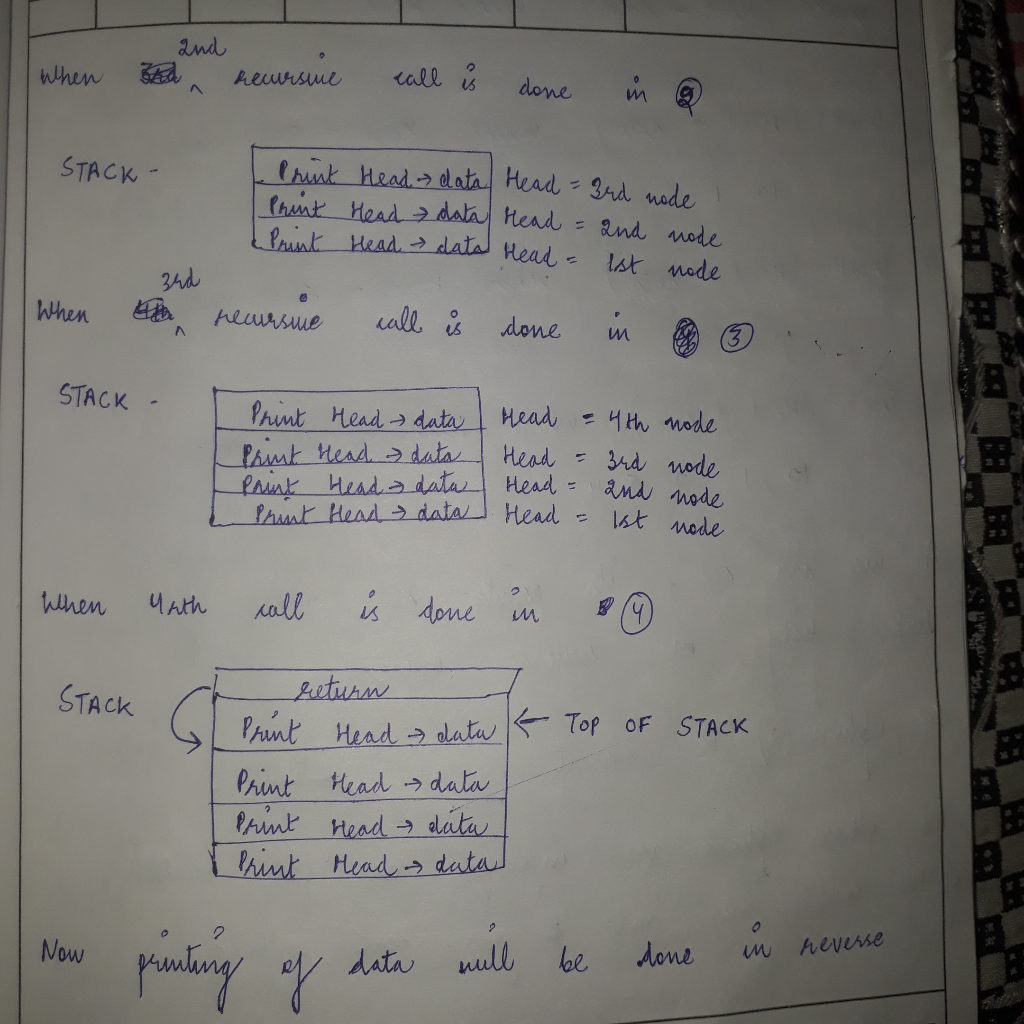 2nd
When recursive call is done in
STACK -
Print Head → data Head = 3rd node
Print Head → data Head = 2nd node
Print Head → data Head = 1st node
3rd
When recursive call is done in 3
STACK -
Print Head → data Head = 4th node
Print Head → data Head = 3rd node
Print Head → data Head = 2nd node
Print Head → data Head = 1st node
When call is done in 4
STACK
return
Print Head → data ← TOP OF STACK
Print Head → data
Print Head → data
Print Head → data
Now printing of data will be done in reverse